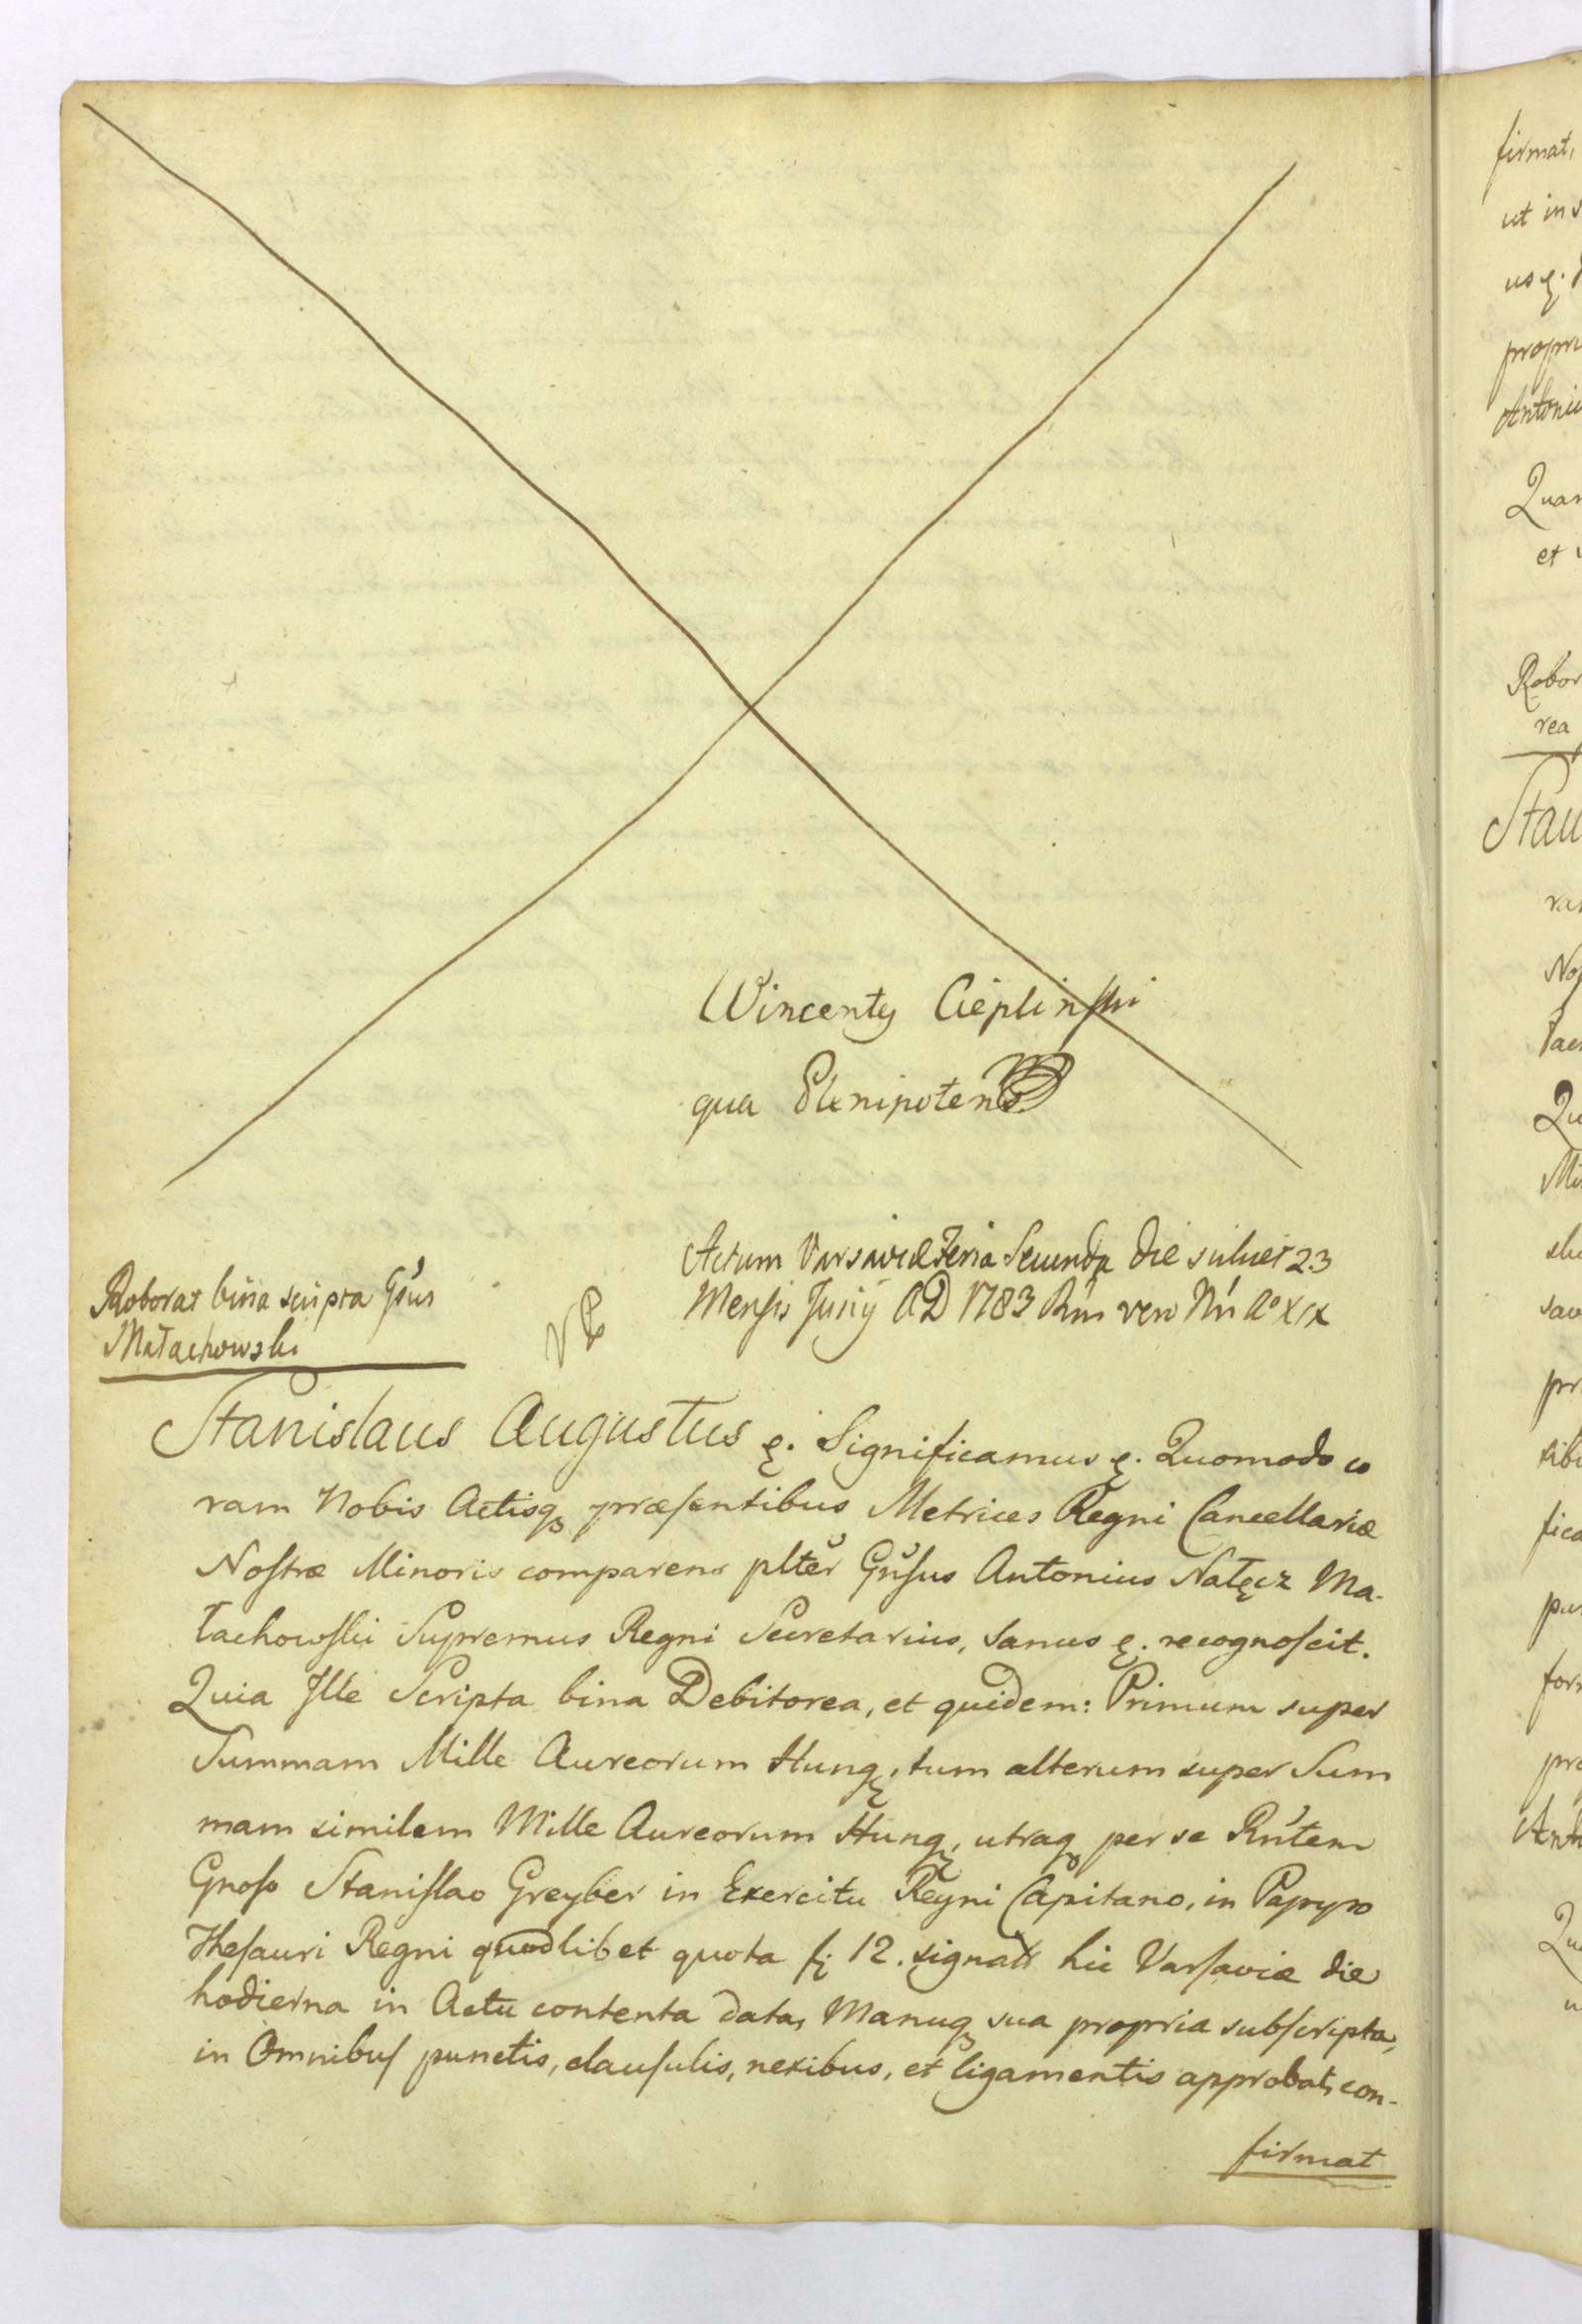 Wincenty Cieplinſki
qua Plenipotens
Actum Varsaviæ Feria Secunda die scilicet 23
Mensis Junij AD 1783 Rni vero Nri A° XIX
Roborat bina scripta Gsus
Małachowski
Stanislaus Augustus ę. Significamus ę. Quomodo co
ram Nobis Actisq præſentibus Metrices Regni Cancellariæ
Noſtræ Minoris comparens plter Gnſus Antonius Nałęcz Ma-
łachowſki Supremus Regni Secretarius, sanus ę. recognoſcit.
Quia Ille Scripta bina Debitorea, et quidem: Primum super
Summam Mille Aureorum Hung, tum alterum super Sum
mam similem Mille Aureorum Hung, utraq per se Rntem
Gnoſo Staniſlao Greyber in Exercitu Regni Capitano, in Papyro
Theſauri Regni quodlibet quota fl 12. signat hic Varſaviæ die
hodierna in Actu contenta data, Manuq sua propria subſcripta,
in Omnibuſ punctis, clauſulis, nexibus, et ligamentis approbat, con-
firmat
firmat,
ut in
usq.
propri
Antoni
Quar
et
Robor
rea
Stan